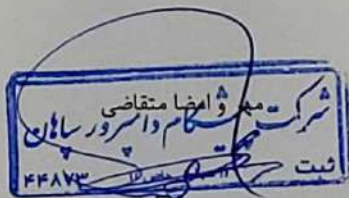 مهر و امضا متقاضی
شرکت پیشگام دامپرور سپاهان
ثبت ۴۴۸۷۳